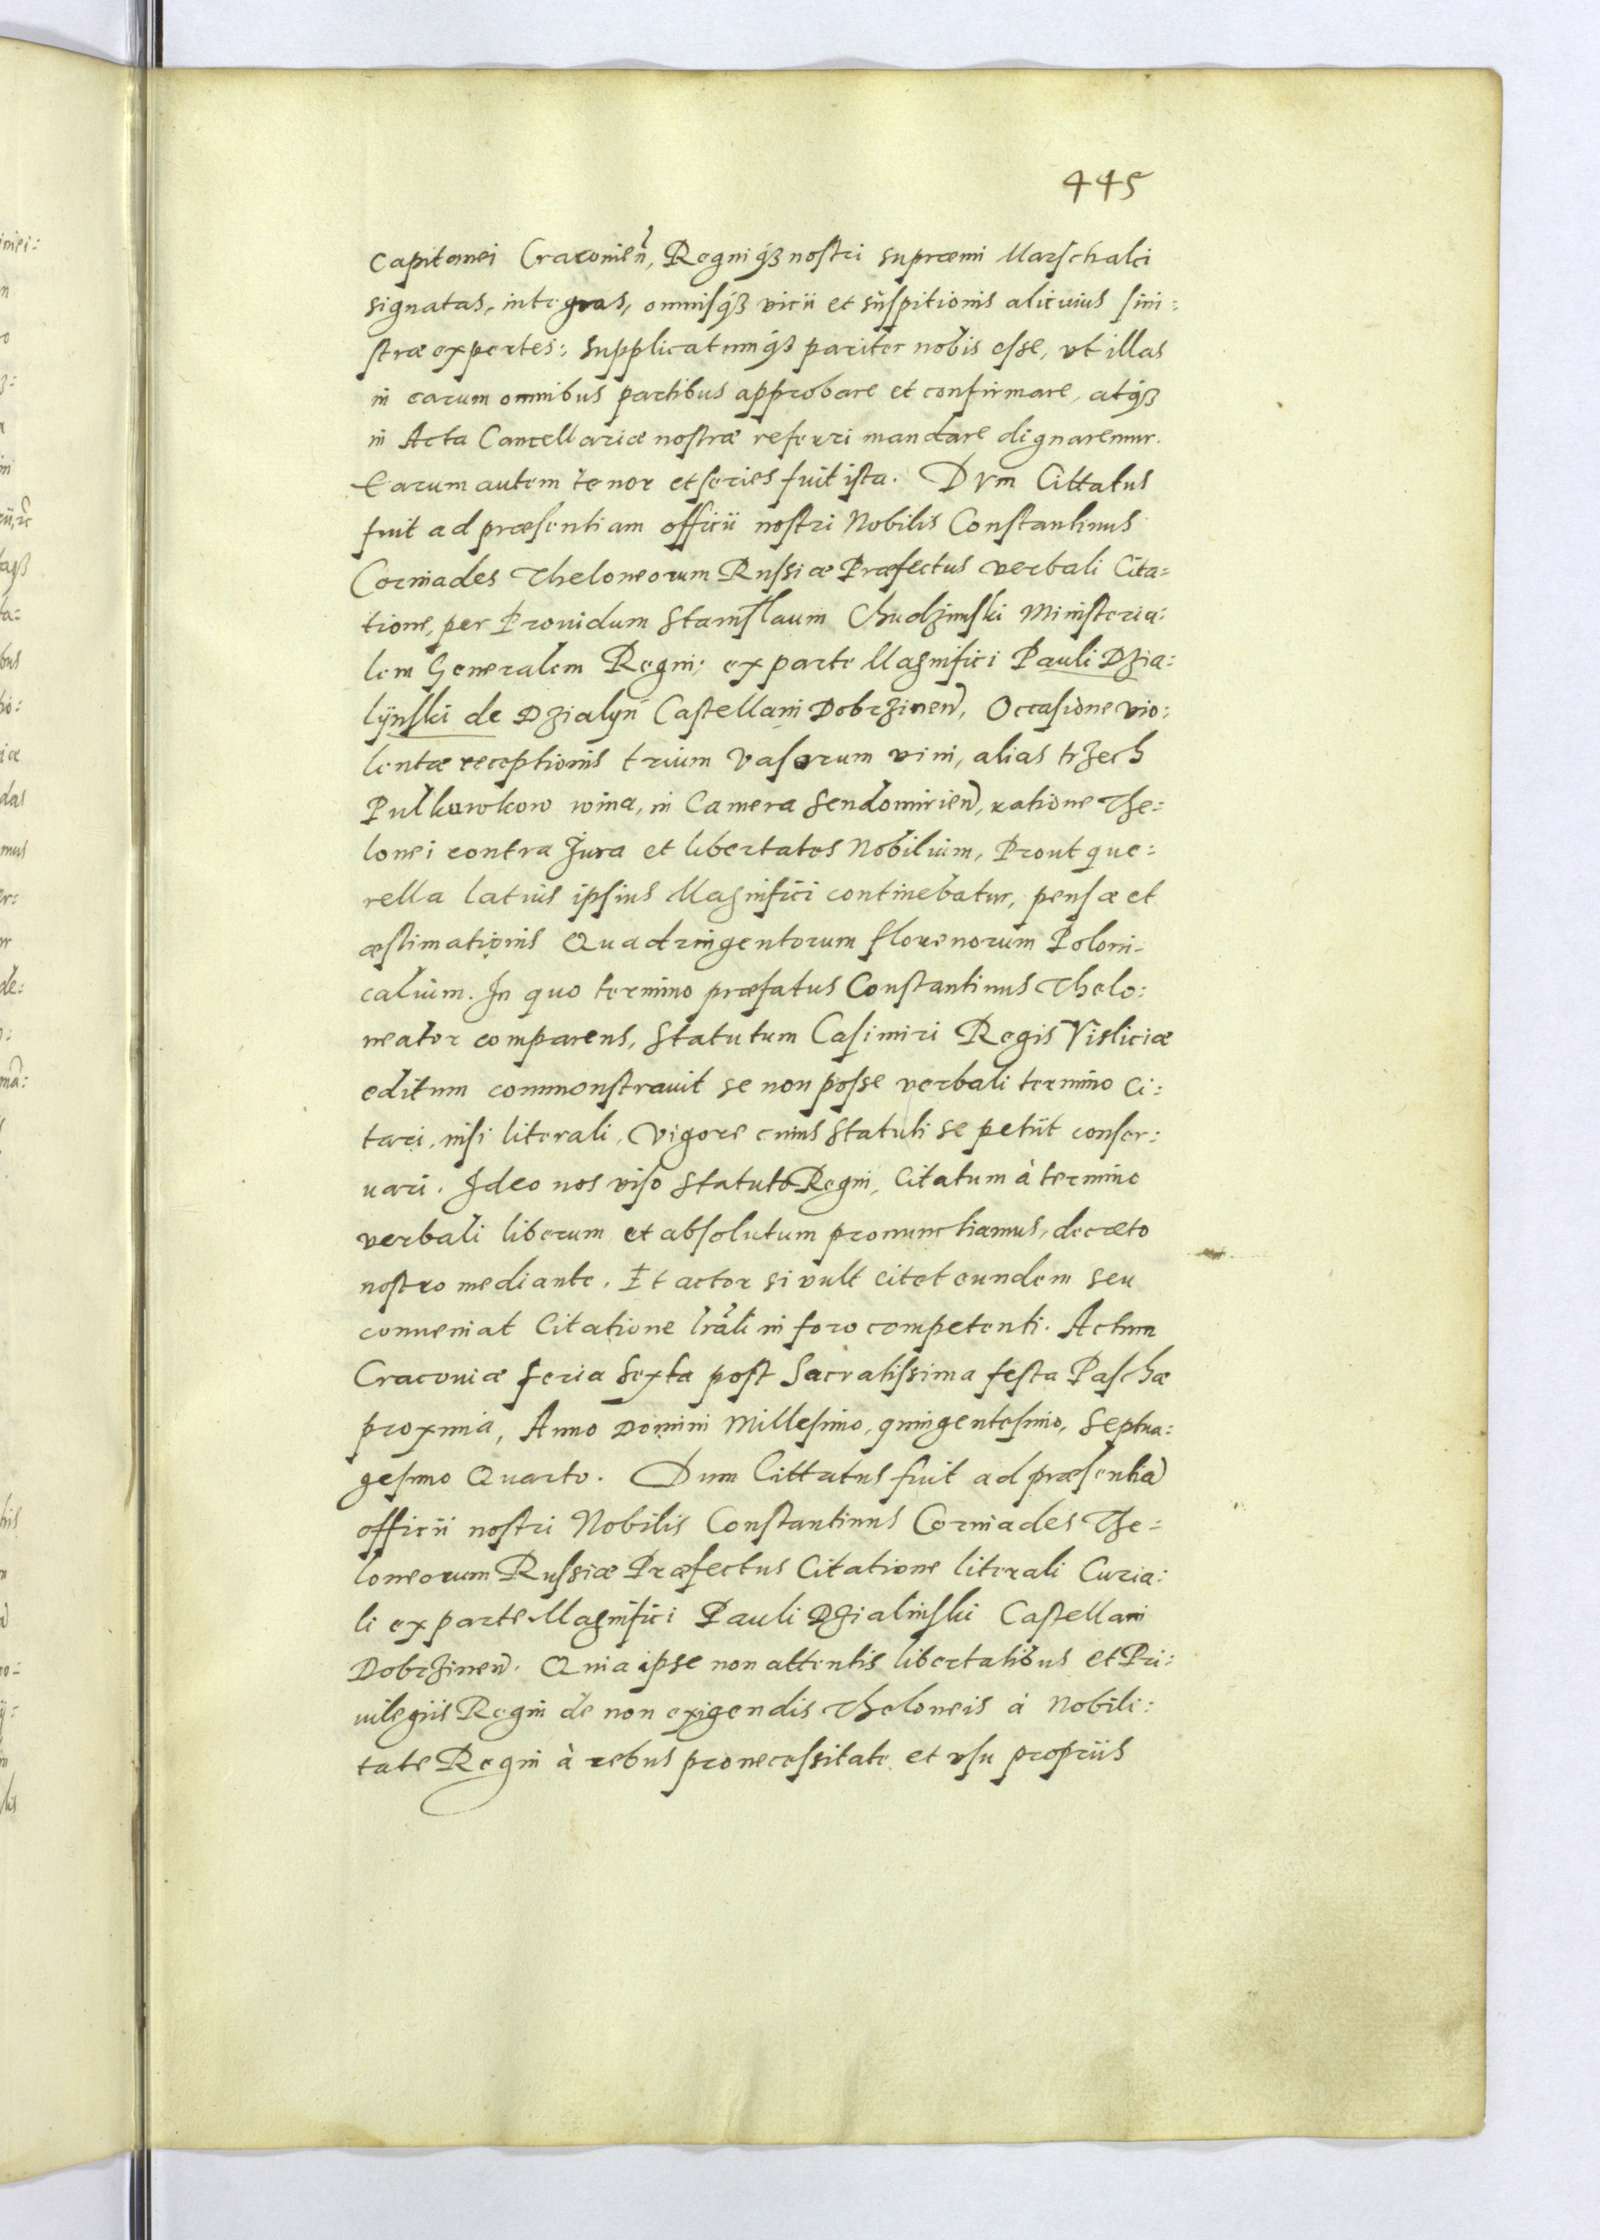 445
Capitanei Cracouien̄, Regniq́ȝ nostri supræmi Marschalci
signatas, integras, omnisq́ȝ vicii et suspitionis alicuius sini:
stræ expertes: supplicatumq́ȝ pariter nobis esse, vt illas
in earum omnibus partibus approbare et confirmare, atq́ȝ
in Acta Cancellariæ nostræ referri mandare dignaremur.
Earum autem tenor et series fuit ista. Dvm Cittatus
fuit ad præsentiam officii nostri Nobilis Constantinus
Corniades Theloneorum Russiæ Præfectus verbali Cita=
tione, per Prouidum Stanislaum Chudzinski Ministeria:
lem Generalem Regni; ex parte Magnifici Pauli Dzia:
lÿnski de Dzialyn Castellani Dobrzinen̄, Occasione vio:
lentæ receptionis trium Vasorum vini, alias trzech
Pulkuwkow wina, in Camera Sendomirien̄, ratione The=
lonei contra Jura et libertates Nobilium, Prout que:
rella latius ipsius Magnifici continebatur, pensæ et
æstimationis Quadringentorum florenorum Poloni-
calium. In quo termino præfatus Constantinus Thelo:
neator comparens, Statutum Casimiri Regis Visliciæ
editum commonstrauit se non posse verbali termino ci:
tari, nisi literali, vigore cuius Statuti se petiit conser:
uari. Ideo nos viso Statuto Regni, Citatum à termino
verbali liberum et absolutum pronunctiamus, decreto
nostro mediante. Et actor si vult citet eundem seu
conueniat Citatione lrāli in foro competenti. Actum
Cracouiæ feria sexta post Sacratissima festa Paschæ
proxima, Anno Domini Millesimo, quingentesimo, septua:
gesimo Quarto. Dum Cittatus fuit ad præsentiā
officii nostri Nobilis Constantinus Corniades The=
loneorum Russiæ Præfectus Citatione literali Curia:
li ex parte Magnifici Pauli Dzialinski Castellani
Dobrzinen̄. Quia ipse non attentis libertatibus et Pri:
uilegiis Regni de non exigendis Theloneis à Nobili:
tate Regni à rebus pro necessitate et vsu propriis